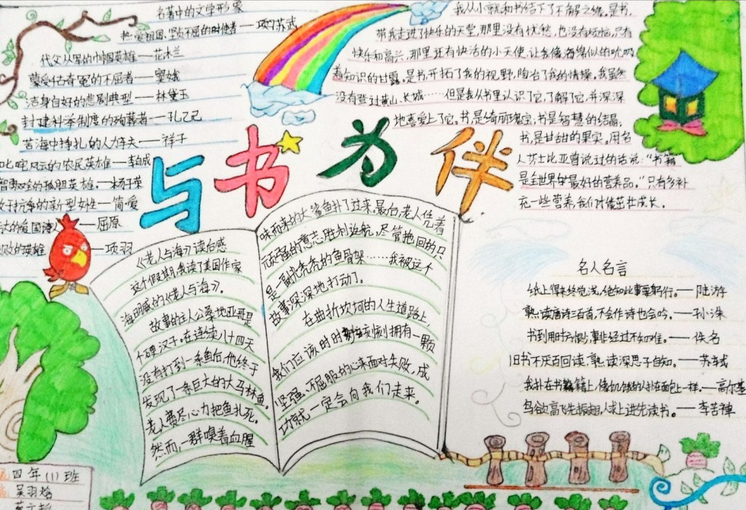 名著中的文学形象
热爱祖国、坚贞不屈的时代者——项苏武
代父从军的巾帼英雄——花木兰
蒙受旷古奇冤的不屈者——窦娥
洁身自好的悲剧典型——林黛玉
封建科学制度的残葬者——孔乙己
苦海中挣扎的人力车夫——祥子
叱咤风云的农民英雄——李自成
智勇双全的孤胆英雄——杨子荣
敢于抗争的新型女性——简·爱
的爱国诗人——屈原
败的英雄——项羽
我从小就和书结下了不解之缘，是书，
带我走进了快乐的天堂，那里没有忧愁，也没有烦恼，只有
快乐和高兴，那里还有快活的小天使，让我像海绵似的吮吸
着知识的甘露，是书开拓了我的视野，陶冶了我的情操，我虽然
没有登过黄山、长城……但是我从书里认识了它，了解了它，并深深
地喜爱上了它。书是绮丽瑰宝，书是智慧的结晶，
书，是甘甜的果实，用名
人莎士比亚曾说过的话说：“书籍
是全世界的最好的营养品。”只有多补
充一些营养，我们才像茁壮成长。
与书为伴
《老人与海》读后感
这个假期我读了美国作家
海明威的《老人与海》。
故事的主人公桑地亚哥是
个硬汉子，在连续八十四天
没有打到一条鱼后，他终于
发现了一条巨大的大马林鱼。
老人费尽心力把鱼扎死。
然而，一群嗅着血腥
味而来的大鲨鱼扑了过来，最后，老人凭着
顽强的意志胜利返航，尽管拖回的只
是一副光秃秃的鱼骨架……我被这个
故事深深地打动了。
在曲折坎坷的人生道路上，
我们应该时时刻刻拥有一颗
坚强、不屈服的心来面对失败，成
功就一定会向我们走来。
名人名言
纸上得来终觉浅，绝知此事要躬行。——陆游
熟读唐诗三百首，不会作诗也会吟。——孙洙
书到用时方恨少，事非经过不知难。——佚名
旧书不厌百回读，熟读深思子自知。——苏轼
我扑在书籍上，像饥饿的人扑在面包上一样。——高尔基
鸟欲高飞先振翅，人求上进先读书。——李苦禅
四年(1)班
吴羽